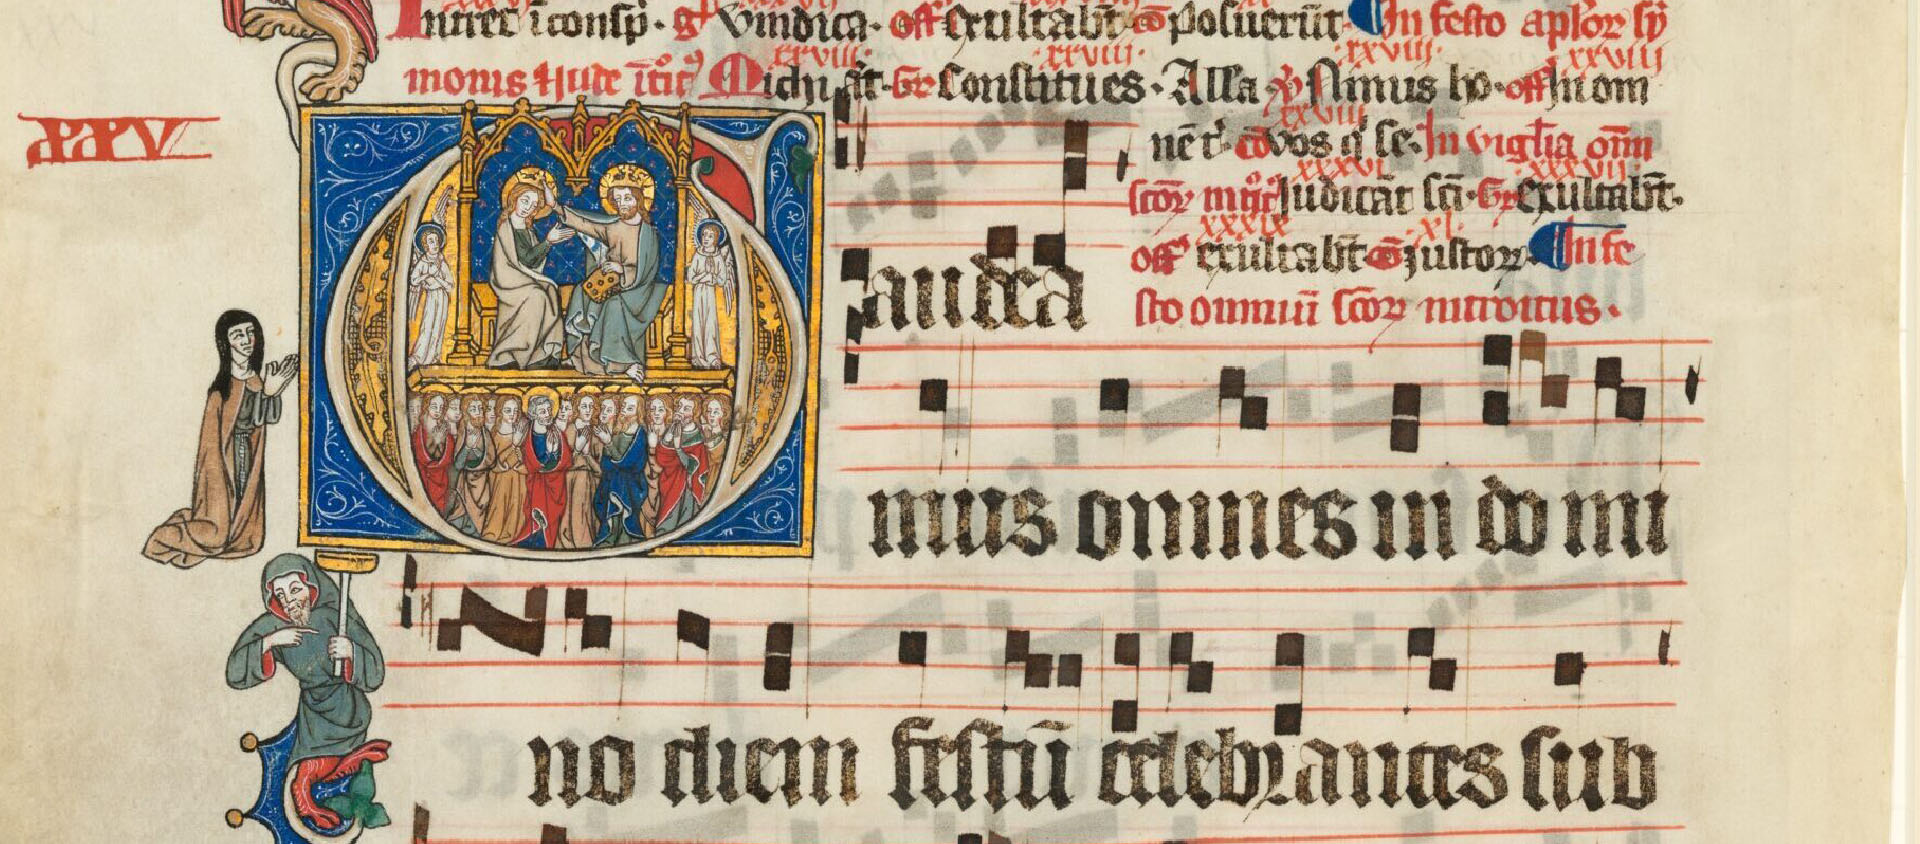 Intret i conspͨ· gᵉ Vindica· off̄ Exultabūt cō Posuerūt ¶ In festo aplͦoꝝ sy
xxviii· xxviii· xxviii· xxviii
monis ⁊ Jude ītͦitꝰ Michi āt· Gr̄ Constitues· Alla ꝟ Nimus ho· off̄ In om
xxviii
nē t̄· cō Vos qͥ se· In vigl̄ia om̄i
xxxvi xxxvii
scōꝝ intͦitꝰ Judicāt sc̄i· Gr̄ Exultabūt·
xxxix xl·
off̄ exultabūt cō Justoꝝ ¶ In fe
sto omniū scōꝝ introitus·
Gaudea
mus omnes in do mi
no diem festū celebrantes sub